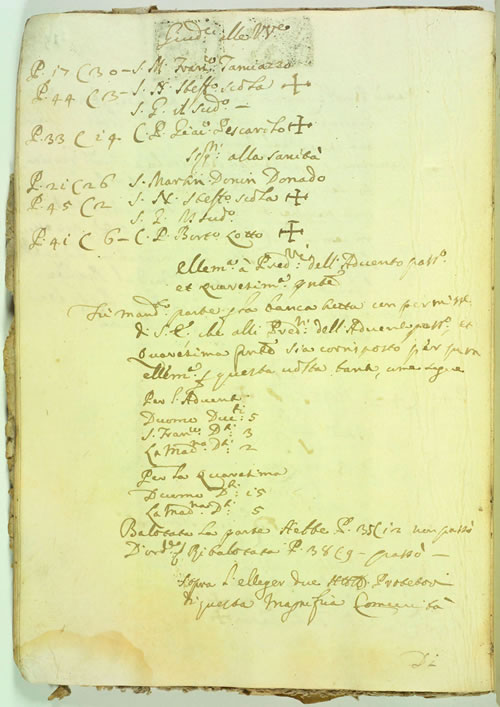 Giud.ci alle V.e
P. 17 C 30 – S. M. Fran.o Tamiazzo
P. 44 C 13 – S. N. Stef.o Scola +
S. G. il Sud.o –
P. 33 C 14 C. P. Pescarolo +
alla sanità
P. 21 C 26 S. Martin Donin Donado
P. 45 C 2 S. N. Stef.o Scola +
S. G. il Sud.o
P. 41 C 6 – C. P. Bort.o Lotto +
Ellem.a à Pred.ri dell' Advento pass.o
et Quaresima
Fù mand. parte per banca
di S. E. che alli Pred.ri dell' Advento pass.o et
Quaresima sia corrisposto per pura
ellem.a questa volta tant. segue
Per l' Advento
Duomo Duc.ti 5
S. Fran.co D.ti 3
La Mad.na D.ti 2
Per la Quaresima
Duomo D.ti 15
La Mad.na D.ti 5
Balotata la parte hebbe P. 35 C 12 non passò
D'ord. Ribalotata P. 38 C 9 – passò –
Sopra l' elleger due Protetori
di questa Magnifica Comunità
Di